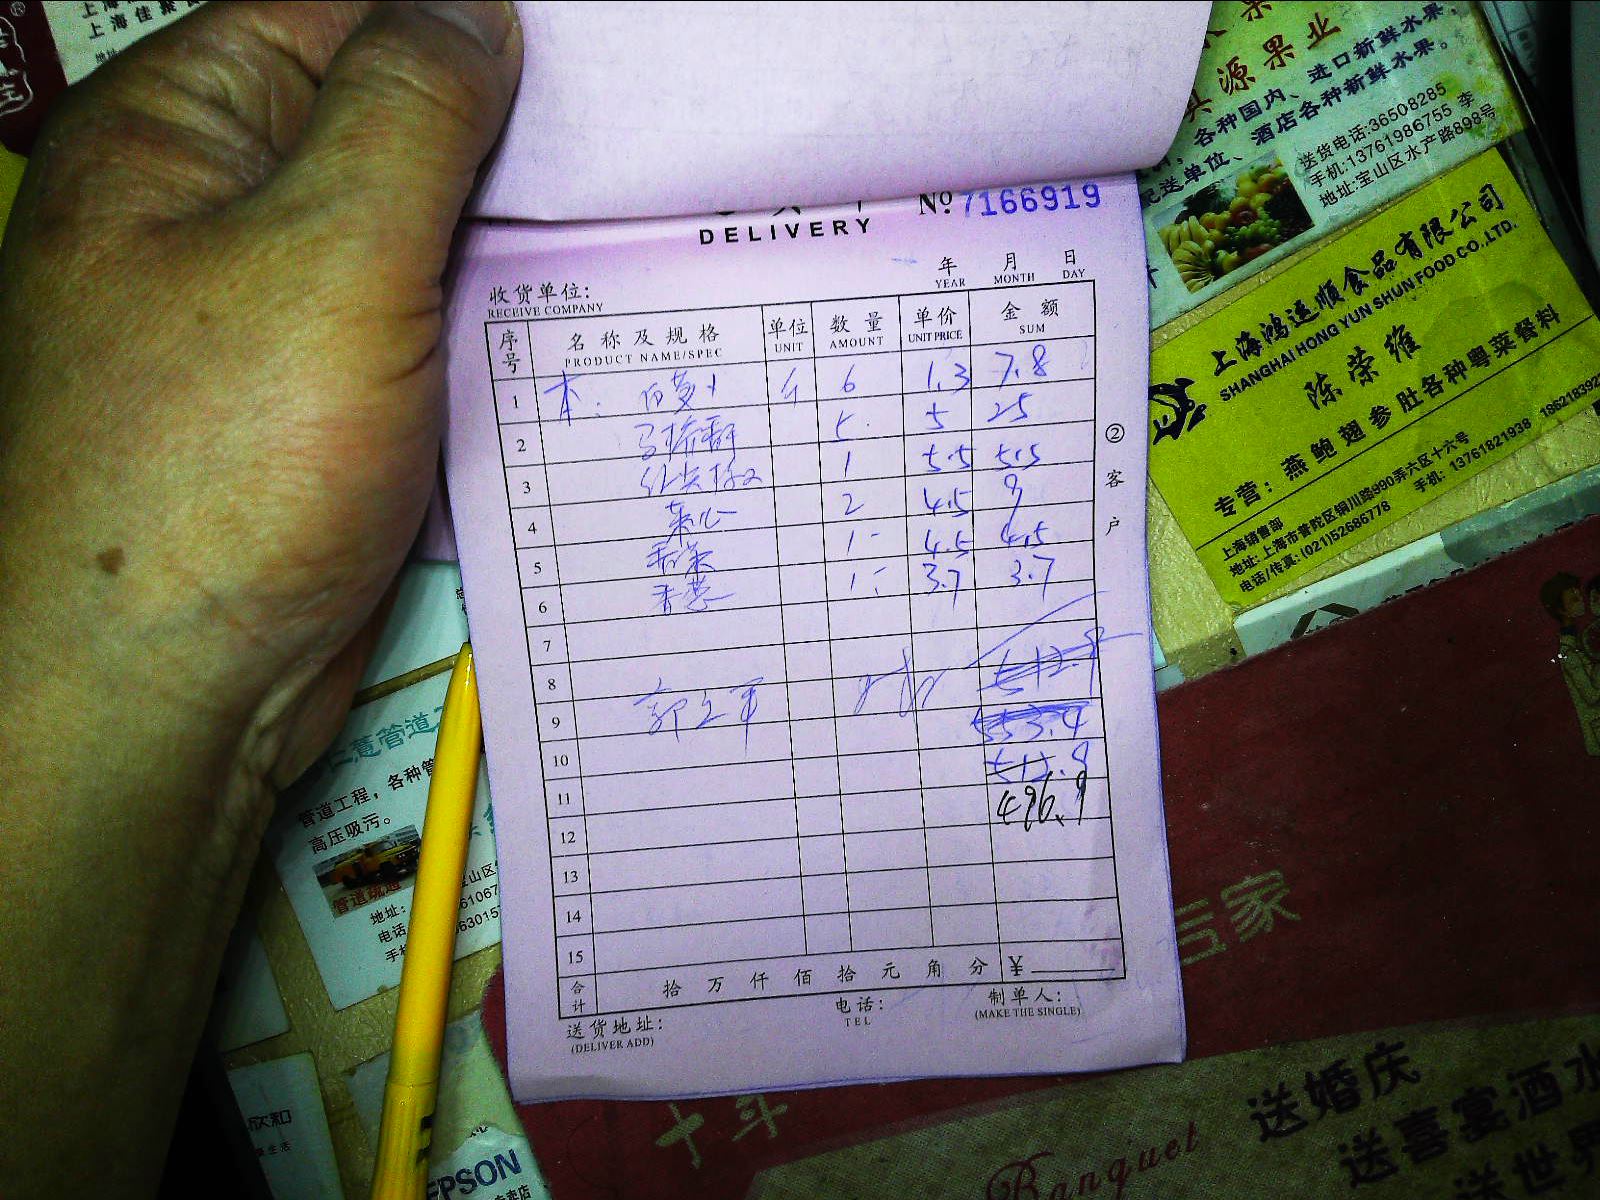 DELIVERY
№ 7166919
年 月 日
YEAR MONTH DAY
收货单位:
RECEIVE COMPANY
序号 名称及规格 单位 数量 单价 金额
PRODUCT NAME/SPEC UNIT AMOUNT UNIT PRICE SUM
1 本: 白萝卜 斤 6 1.3 7.8
2 5 5 25
3 1 5.5 5.5
4 菜心 2 4.5 9
5 香菜 1 4.5 4.5
6 香葱 1 3.7 3.7
7
8 512.9
9 553.4
10 512.9
11 496.9
12
13
14
15
合计 拾万仟佰拾元角分 ¥
送货地址:
(DELIVER ADD)
电话:
TEL
制单人:
(MAKE THE SINGLE)
②客户
源果业
各种国内、进口新鲜水果,
送单位、酒店各种新鲜水果。
送货电话:36508285
手机:13761986755 李
地址:宝山区水产路898号
上海鸿运顺食品有限公司
SHANGHAI HONG YUN SHUN FOOD CO.,LTD.
陈荣维
专营:燕鲍翅参肚各种粤菜餐料
上海销售部
地址:上海市普陀区铜川路990弄六区十六号
电话/传真:(021)52686778 手机:13761821938
管道工程,各种管
高压吸污。
管道疏通
宝山区
地址:
电话
欣和
EPSON
十年
Banquet
送婚庆
送喜宴酒水
送世界